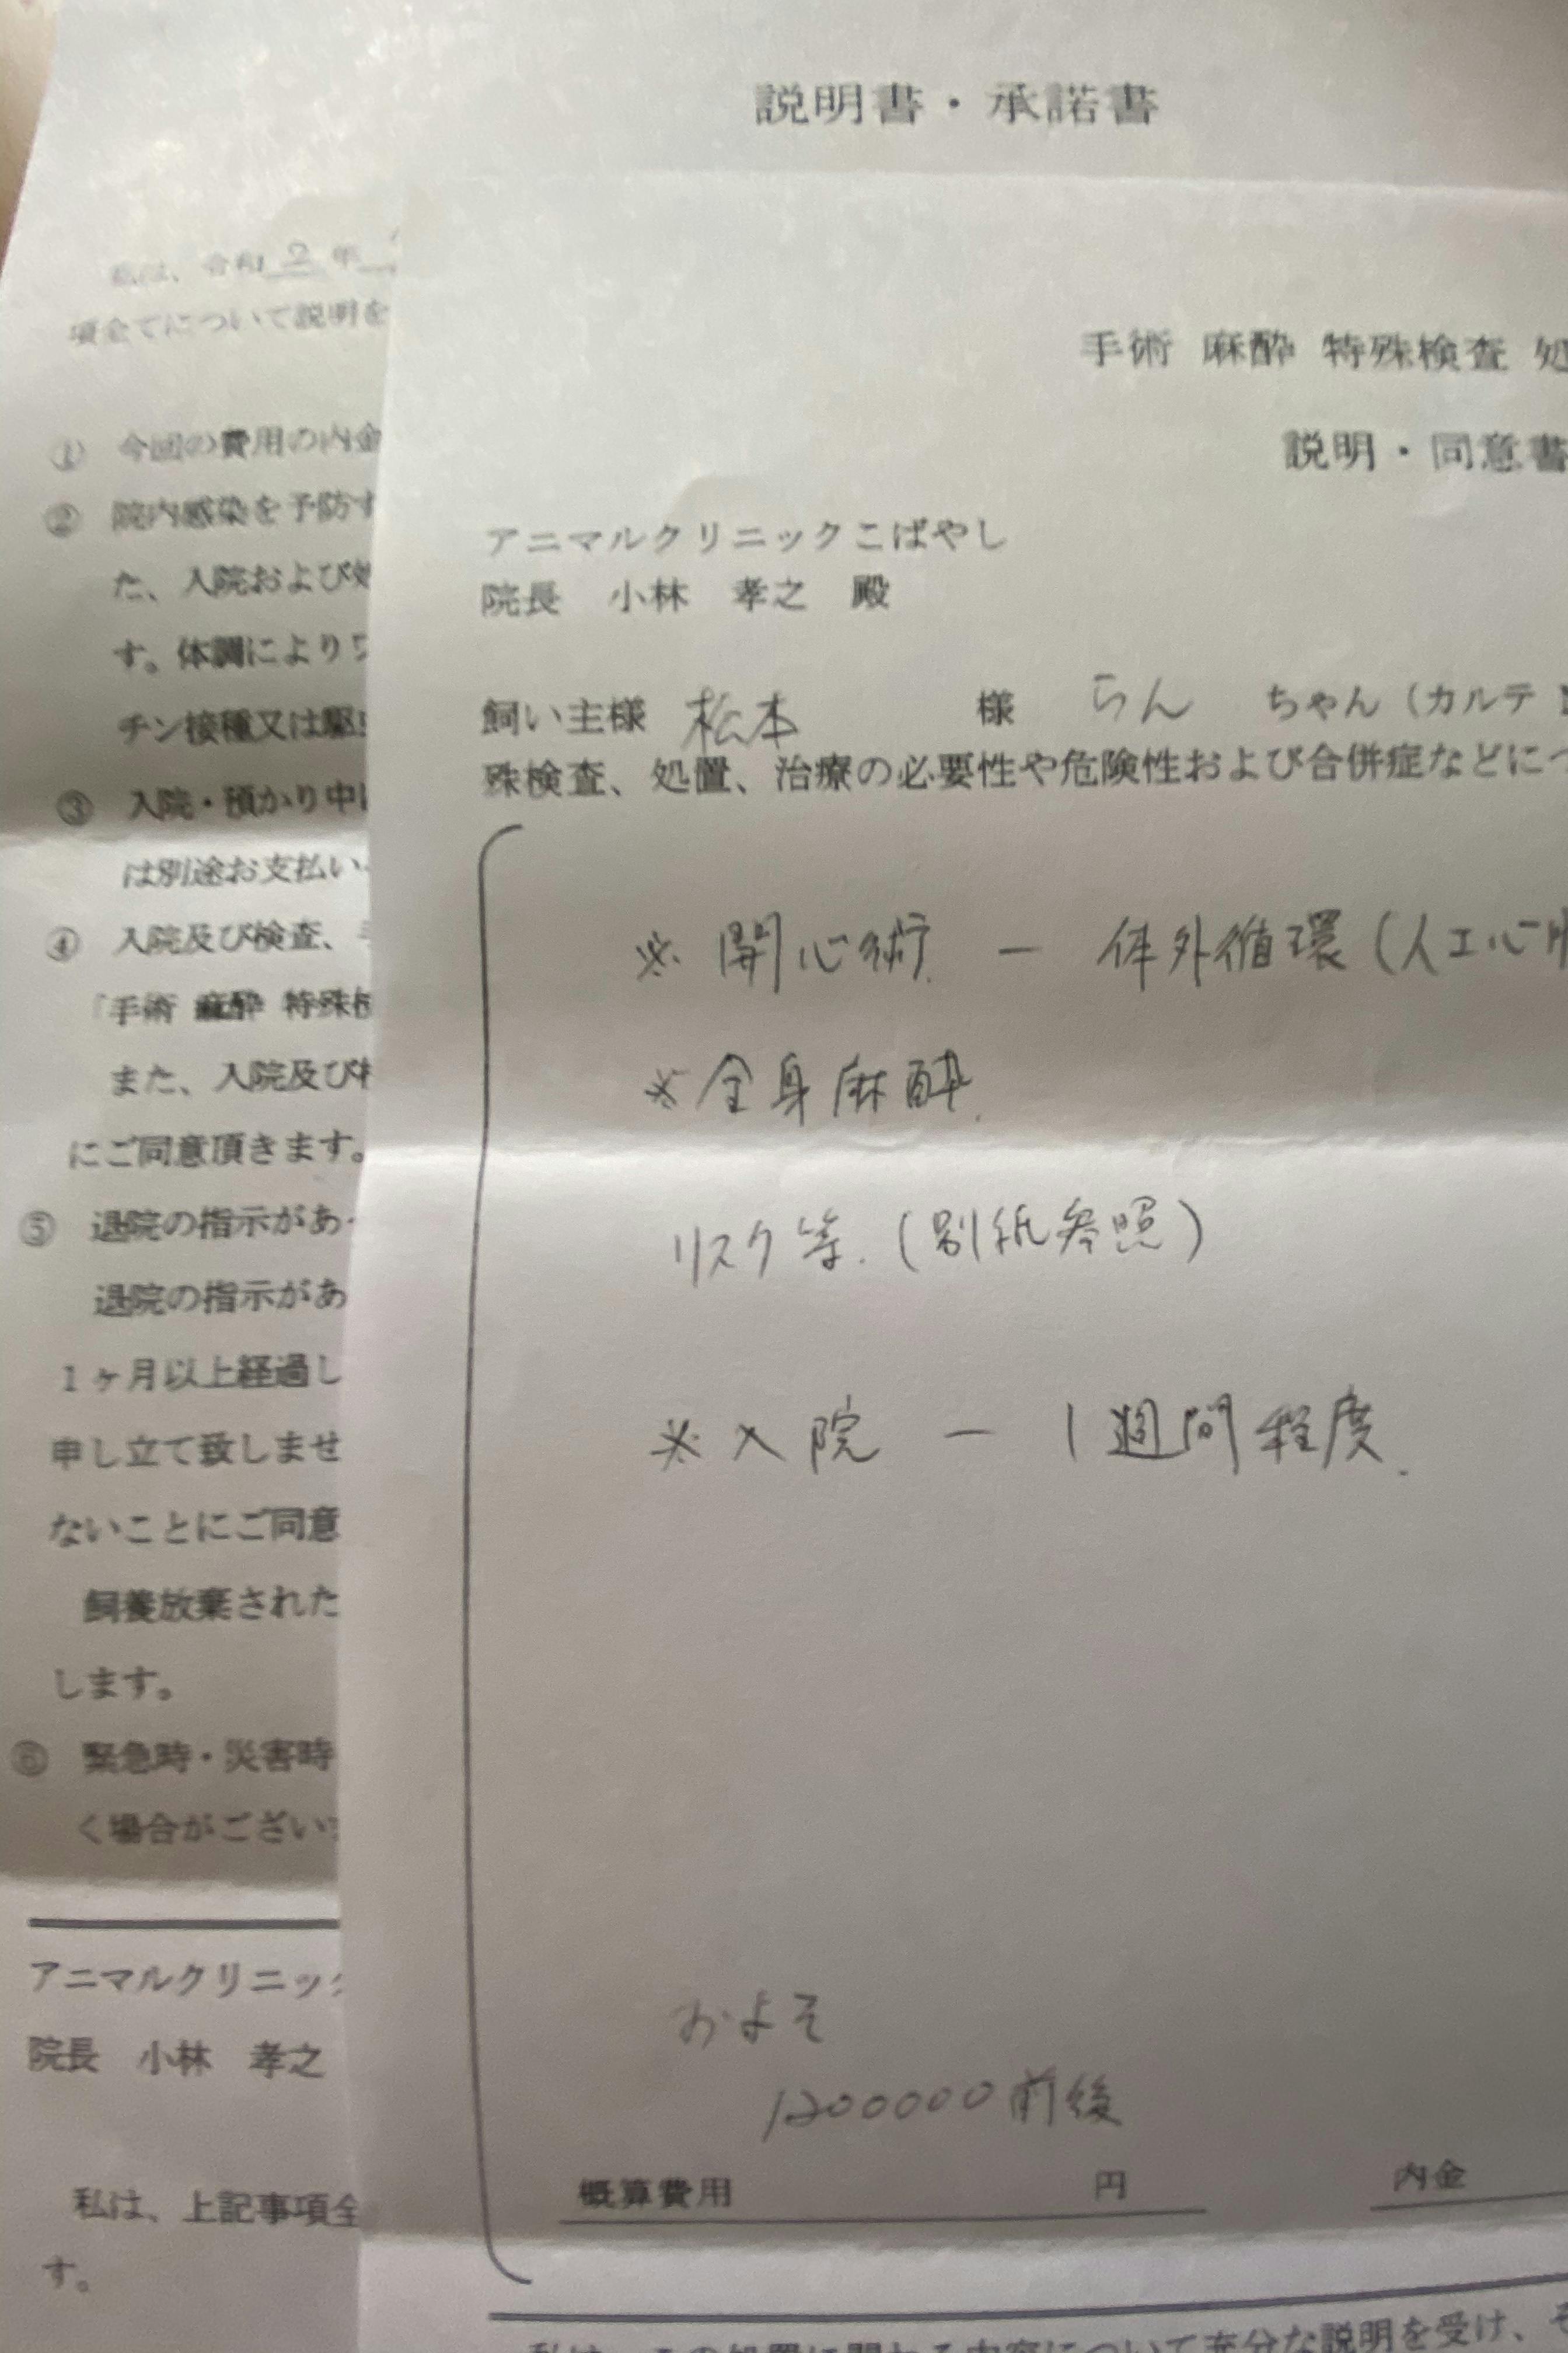 説明書・承諾書
私は、令和2年
項全てについて説明を
① 今回の費用の内金
② 院内感染を予防す
た、入院および処
す。体調によりワ
チン接種又は駆虫
③ 入院・預かり中に
は別途お支払い
④ 入院及び検査、手
「手術 麻酔 特殊検
また、入院及び検
にご同意頂きます。
⑤ 退院の指示があ
退院の指示があ
1ヶ月以上経過し
申し立て致しませ
ないことにご同意
飼養放棄された
します。
⑥ 緊急時・災害時
く場合がござい
アニマルクリニック
院長 小林 孝之
私は、上記事項全
す。
手術 麻酔 特殊検査 処
説明・同意書
アニマルクリニックこばやし
院長 小林 孝之 殿
飼い主様 松本 様 らん ちゃん(カルテ
殊検査、処置、治療の必要性や危険性および合併症などにつ
※開心術 ー 体外循環(人工心肺
※全身麻酔.
リスク等.(別紙参照)
※入院 ー 1週間程度.
およそ
1200000前後
概算費用 円 内金
私は、この処置に関わる内容について充分な説明を受け、そ